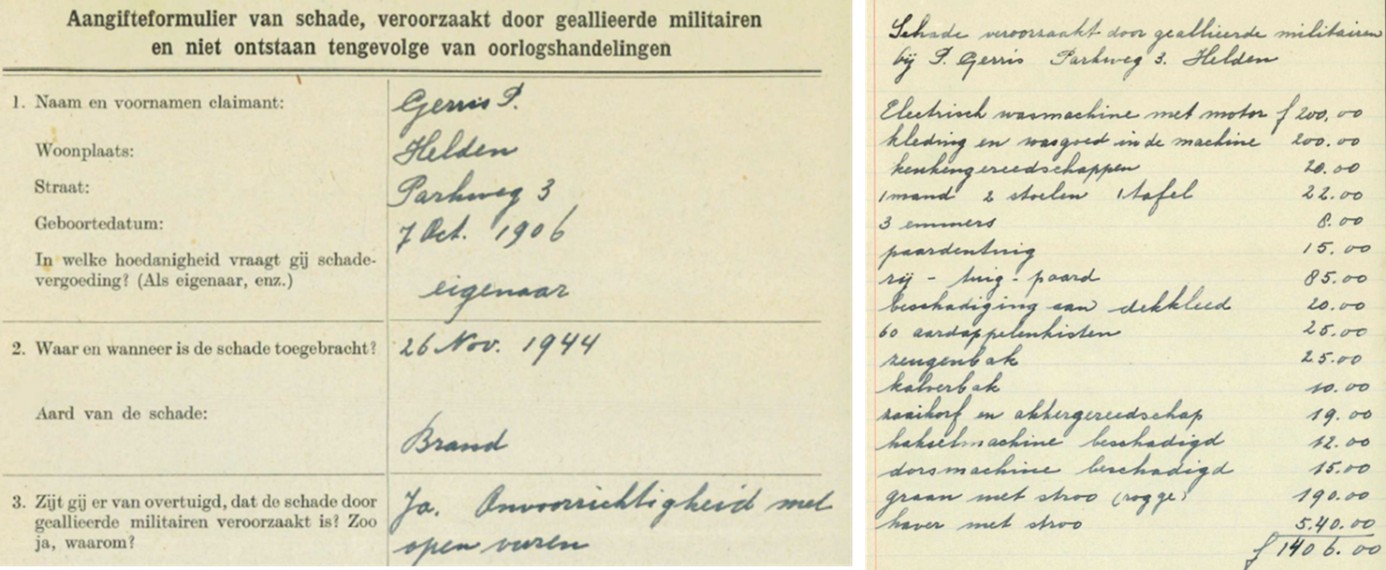 Aangifteformulier van schade, veroorzaakt door geallieerde militairen
en niet ontstaan tengevolge van oorlogshandelingen
1. Naam en voornamen claimant: Gerris P.
Woonplaats: Helden
Straat: Parkweg 3
Geboortedatum: 7 Oct. 1906
In welke hoedanigheid vraagt gij schade-
vergoeding? (Als eigenaar, enz.) eigenaar
2. Waar en wanneer is de schade toegebracht? 26 Nov. 1944
Aard van de schade:
Brand
3. Zijt gij er van overtuigd, dat de schade door Ja. Onvoorzichtigheid met
geallieerde militairen veroorzaakt is? Zoo open vuren
ja, waarom?
Schade veroorzaakt door geallieerde militairen
bij P. Gerris Parkweg 3. Helden
Electrisch wasmachine met motor f 200.00
kleding en wasgoed in de machine 200.00
keukengereedschappen 20.00
1 mand 2 stoelen 1 tafel 22.00
3 emmers 8.00
paardentuig 15.00
rij - tuig - paard 85.00
beschadiging aan dekkleed 20.00
60 aardappelenkisten 25.00
zeugenbak 25.00
kalverbak 10.00
zaaikorf en akkergereedschap 19.00
hakselmachine beschadigd 12.00
dorsmachine beschadigd 15.00
graan met stroo (rogge) 190.00
haver met stroo 5.40.00
f 1406.00